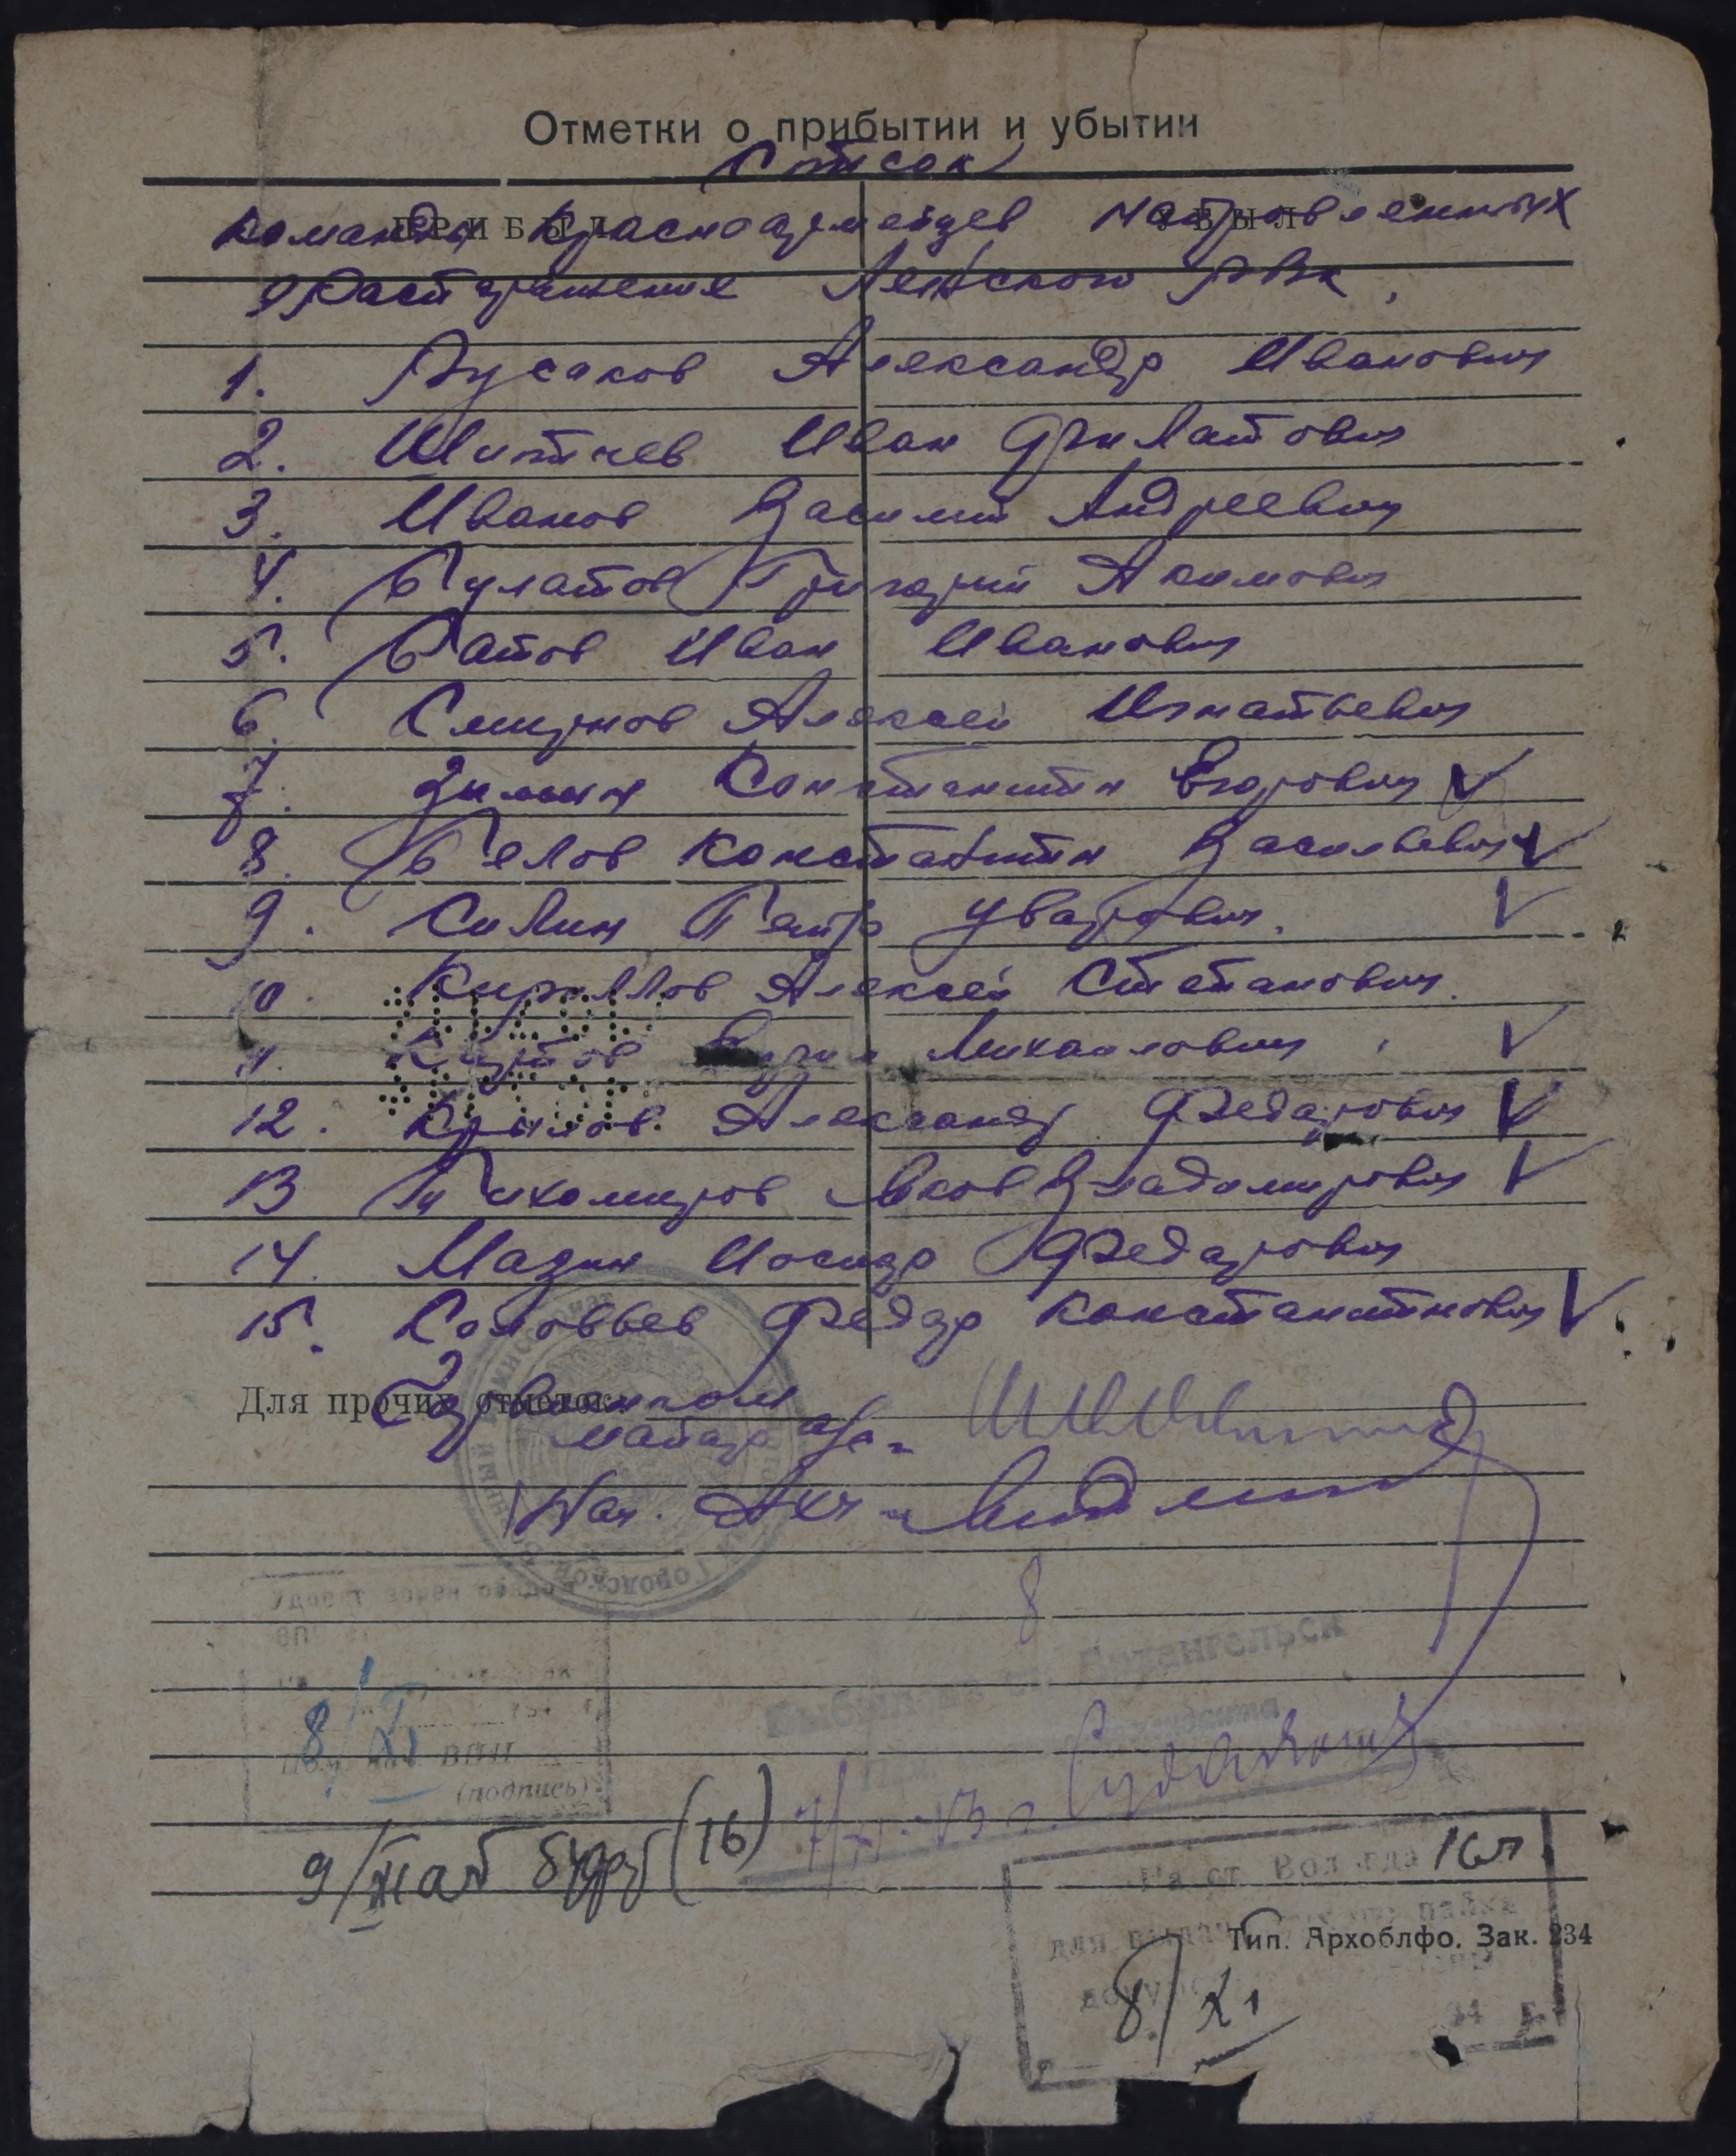 Отметки о прибытии и убытии
Список
ПРИБЫЛ УБЫЛ
команды красноармейцев направленных
в распоряжение Ленского РВК,
1. Русаков Александр Иванович
2. Иван Филатович
3. Иванов Василий Андреевич
4. Булатов Григорий Акимович
5. Батов Иван Иванович
6. Смирнов Алексей Игнатьевич
7. Зимин Константин Егорович V
8. Белов Константин Васильевич V
9. Силин Петр Уварович. V
10. Кириллов Алексей Степанович.
11. Михайлович, V
12. Крылов Александр Федорович V
13 Тихомиров Яков Владимирович V
14. Мазин Федорович
15. Соловьев Федор Константинович V
Для прочих отметок
Горвоенком
майор
Нач.
8
Выбыл из ст. Архангельск
8/XI
ВПП
(подпись)
7/XI-43 г.
9/ хлаб (16)
На ст. Вологда 16л
для выдачи пайка
Тип. Архоблфо. Зак. 234
8/XI